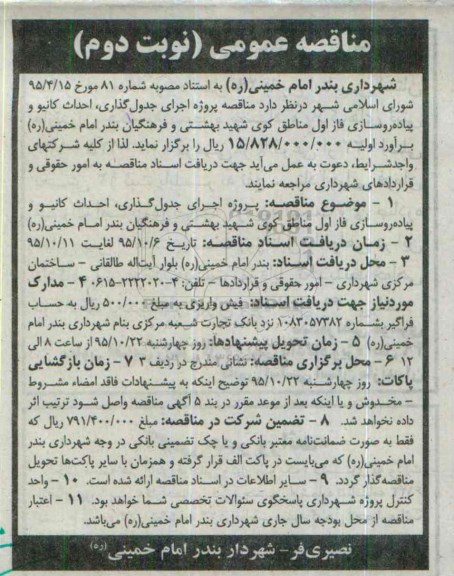 مناقصه عمومی (نوبت دوم)
شهرداری بندر امام خمینی(ره) به استناد مصوبه شماره ۸۱ مورخ ۹۵/۴/۱۵
شورای اسلامی شهر درنظر دارد مناقصه پروژه اجرای جدول‌گذاری، احداث کانیو و
پیاده‌روسازی فاز اول مناطق کوی شهید بهشتی و فرهنگیان بندر امام خمینی(ره)
برآورد اولیه ۱۵/۸۲۸/۰۰۰/۰۰۰ ریال را برگزار نماید. لذا از کلیه شرکتهای
واجدشرایط، دعوت به عمل می‌آید جهت دریافت اسناد مناقصه به امور حقوقی و
قراردادهای شهرداری مراجعه نمایند.
۱ - موضوع مناقصه: پروژه اجرای جدول‌گذاری، احداث کانیو و
پیاده‌روسازی فاز اول مناطق کوی شهید بهشتی و فرهنگیان بندر امام خمینی(ره)
۲ - زمان دریافت اسناد مناقصه: تاریخ ۹۵/۱۰/۶ لغایت ۹۵/۱۰/۱۱
۳ - محل دریافت اسناد: بندر امام خمینی(ره) بلوار آیت‌اله طالقانی - ساختمان
مرکزی شهرداری - امور حقوقی و قراردادها - تلفن: ۴-۲۲۲۲۰۲۰-۰۶۱۵ ۴ - مدارک
موردنیاز جهت دریافت اسناد: فیش واریزی به مبلغ ۵۰۰/۰۰۰ ریال به حساب
فراگیر بشماره ۱۰۸۳۰۵۷۳۸۲ نزد بانک تجارت شعبه مرکزی بنام شهرداری بندر امام
خمینی(ره) ۵ - زمان تحویل پیشنهادها: روز چهارشنبه ۹۵/۱۰/۲۲ از ساعت ۸ الی
۱۲ ۶ - محل برگزاری مناقصه: نشانی مندرج در ردیف ۳ ۷ - زمان بازگشایی
پاکات: روز چهارشنبه ۹۵/۱۰/۲۲ توضیح اینکه به پیشنهادات فاقد امضاء مشروط
- مخدوش و یا اینکه بعد از موعد مقرر در بند ۵ آگهی مناقصه واصل شود ترتیب اثر
داده نخواهد شد. ۸ - تضمین شرکت در مناقصه: مبلغ ۷۹۱/۴۰۰/۰۰۰ ریال که
فقط به صورت ضمانت‌نامه معتبر بانکی و یا چک تضمینی بانکی در وجه شهرداری بندر
امام خمینی(ره) که می‌بایست در پاکت الف قرار گرفته و همزمان با سایر پاکت‌ها تحویل
مناقصه‌گذار گردد. ۹ - سایر اطلاعات در اسناد مناقصه ارائه شده است. ۱۰ - واحد
کنترل پروژه شهرداری پاسخگوی سئوالات تخصصی شما خواهد بود. ۱۱ - اعتبار
مناقصه از محل بودجه سال جاری شهرداری بندر امام خمینی(ره) می‌باشد.
نصیری‌فر - شهردار بندر امام خمینی(ره)